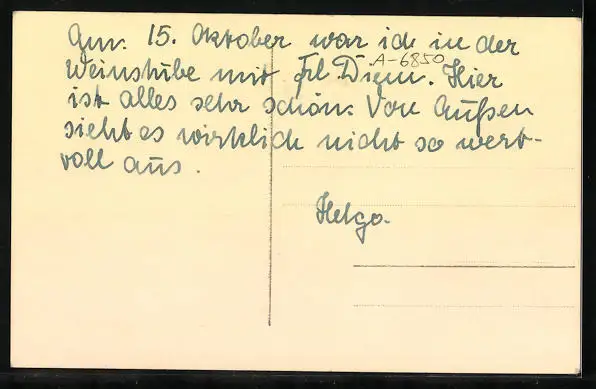 Am 15. Oktober war ich in der
A-6850
Weinstube mit Frl. Diem. Hier
ist alles sehr schön. Von Außen
sieht es wirklich nicht so wert-
voll aus.
Helga.